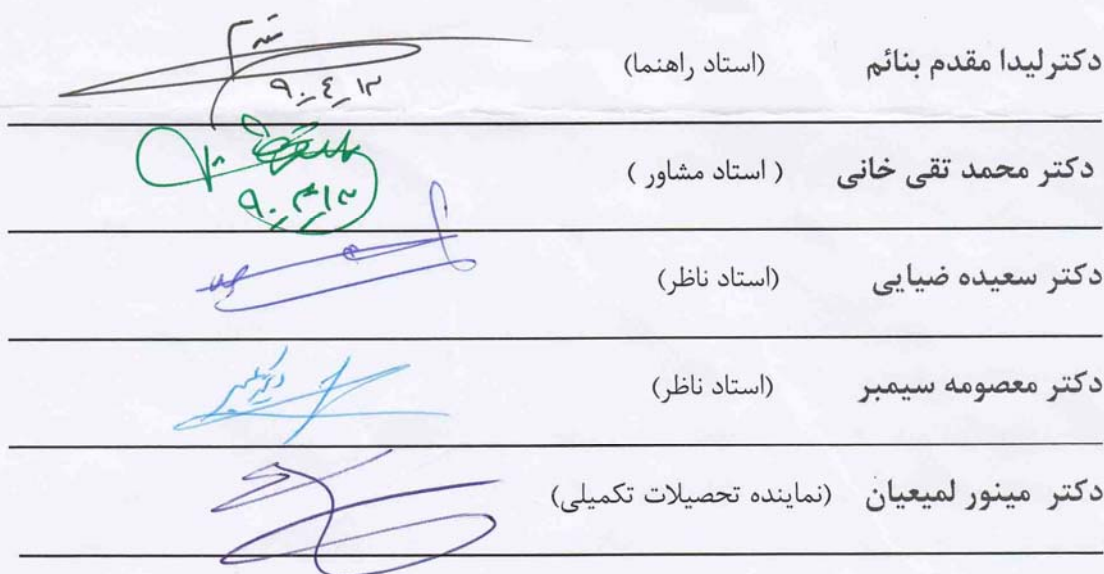 دکترلیدا مقدم بنائم (استاد راهنما)
۹۰_۴_۱۲
دکتر محمد تقی خانی ( استاد مشاور )
دکتر سعیده ضیایی (استاد ناظر)
دکتر معصومه سیمبر (استاد ناظر)
دکتر مینور لمیعیان (نماینده تحصیلات تکمیلی)